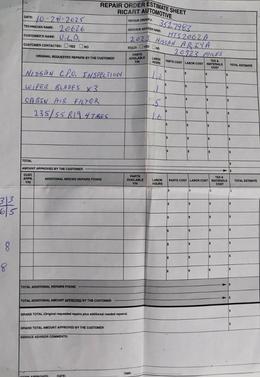 REPAIR ORDER ESTIMATE SHEET
RICART AUTOMOTIVE
DATE: 10-28-2025
TECHNICIAN NAME: 20626
CUSTOMER'S NAME: U.C.D.
2023 NISSAN ARIYA
CUSTOMER CONTACTED: YES NO
20923 MILES
ORIGINAL REQUESTED REPAIRS BY THE CUSTOMER PARTS AVAILABLE Y/N LABOR HOURS PARTS COST LABOR COST TAX & MATERIALS COST TOTAL ESTIMATE
NISSAN C.P.O. INSPECTION
WIPER BLADES X3 .1
CABIN AIR FILTER .5
235/55R19 4 TIRES
TOTAL
AMOUNT APPROVED BY THE CUSTOMER
ADDITIONAL NEEDED REPAIRS FOUND PARTS AVAILABLE Y/N LABOR HOURS PARTS COST LABOR COST TAX & MATERIALS COST TOTAL ESTIMATE
3 3
6 5
8
8
TOTAL ADDITIONAL REPAIRS FOUND
TOTAL ADDITIONAL AMOUNT APPROVED BY THE CUSTOMER
GRAND TOTAL (Original requested repairs plus additional needed repairs)
GRAND TOTAL AMOUNT APPROVED BY THE CUSTOMER
SERVICE ADVISOR COMMENTS: